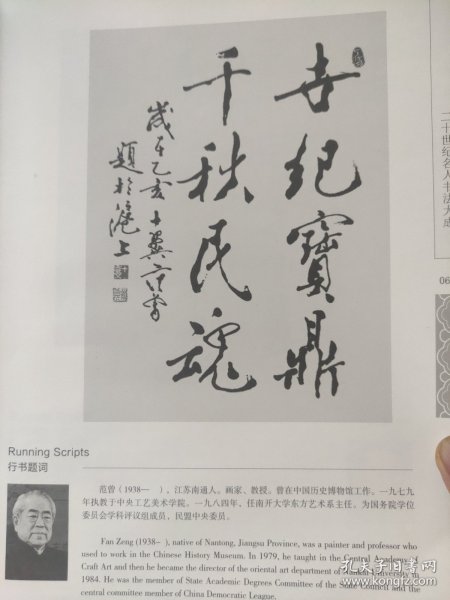 世纪寶鼎
千秋民魂
歲在乙亥十翼范曾
題於滬上
二十世纪名人书法大成
06
Running Scripts
行书题词
范曾（1938— ），江苏南通人。画家、教授。曾在中国历史博物馆工作。一九七九
年执教于中央工艺美术学院。一九八四年，任南开大学东方艺术系主任。为国务院学位
委员会学科评议组成员，民盟中央委员。
Fan Zeng (1938- ), native of Nantong, Jiangsu Province, was a painter and professor who
used to work in the Chinese History Museum. In 1979, he taught in the Central Academy of
Craft Art and then he became the director of the oriental art department of Nankai University in
1984. He was the member of State Academic Degrees Committee of the State Council and the
central committee member of China Democratic League.
孔夫子旧书网